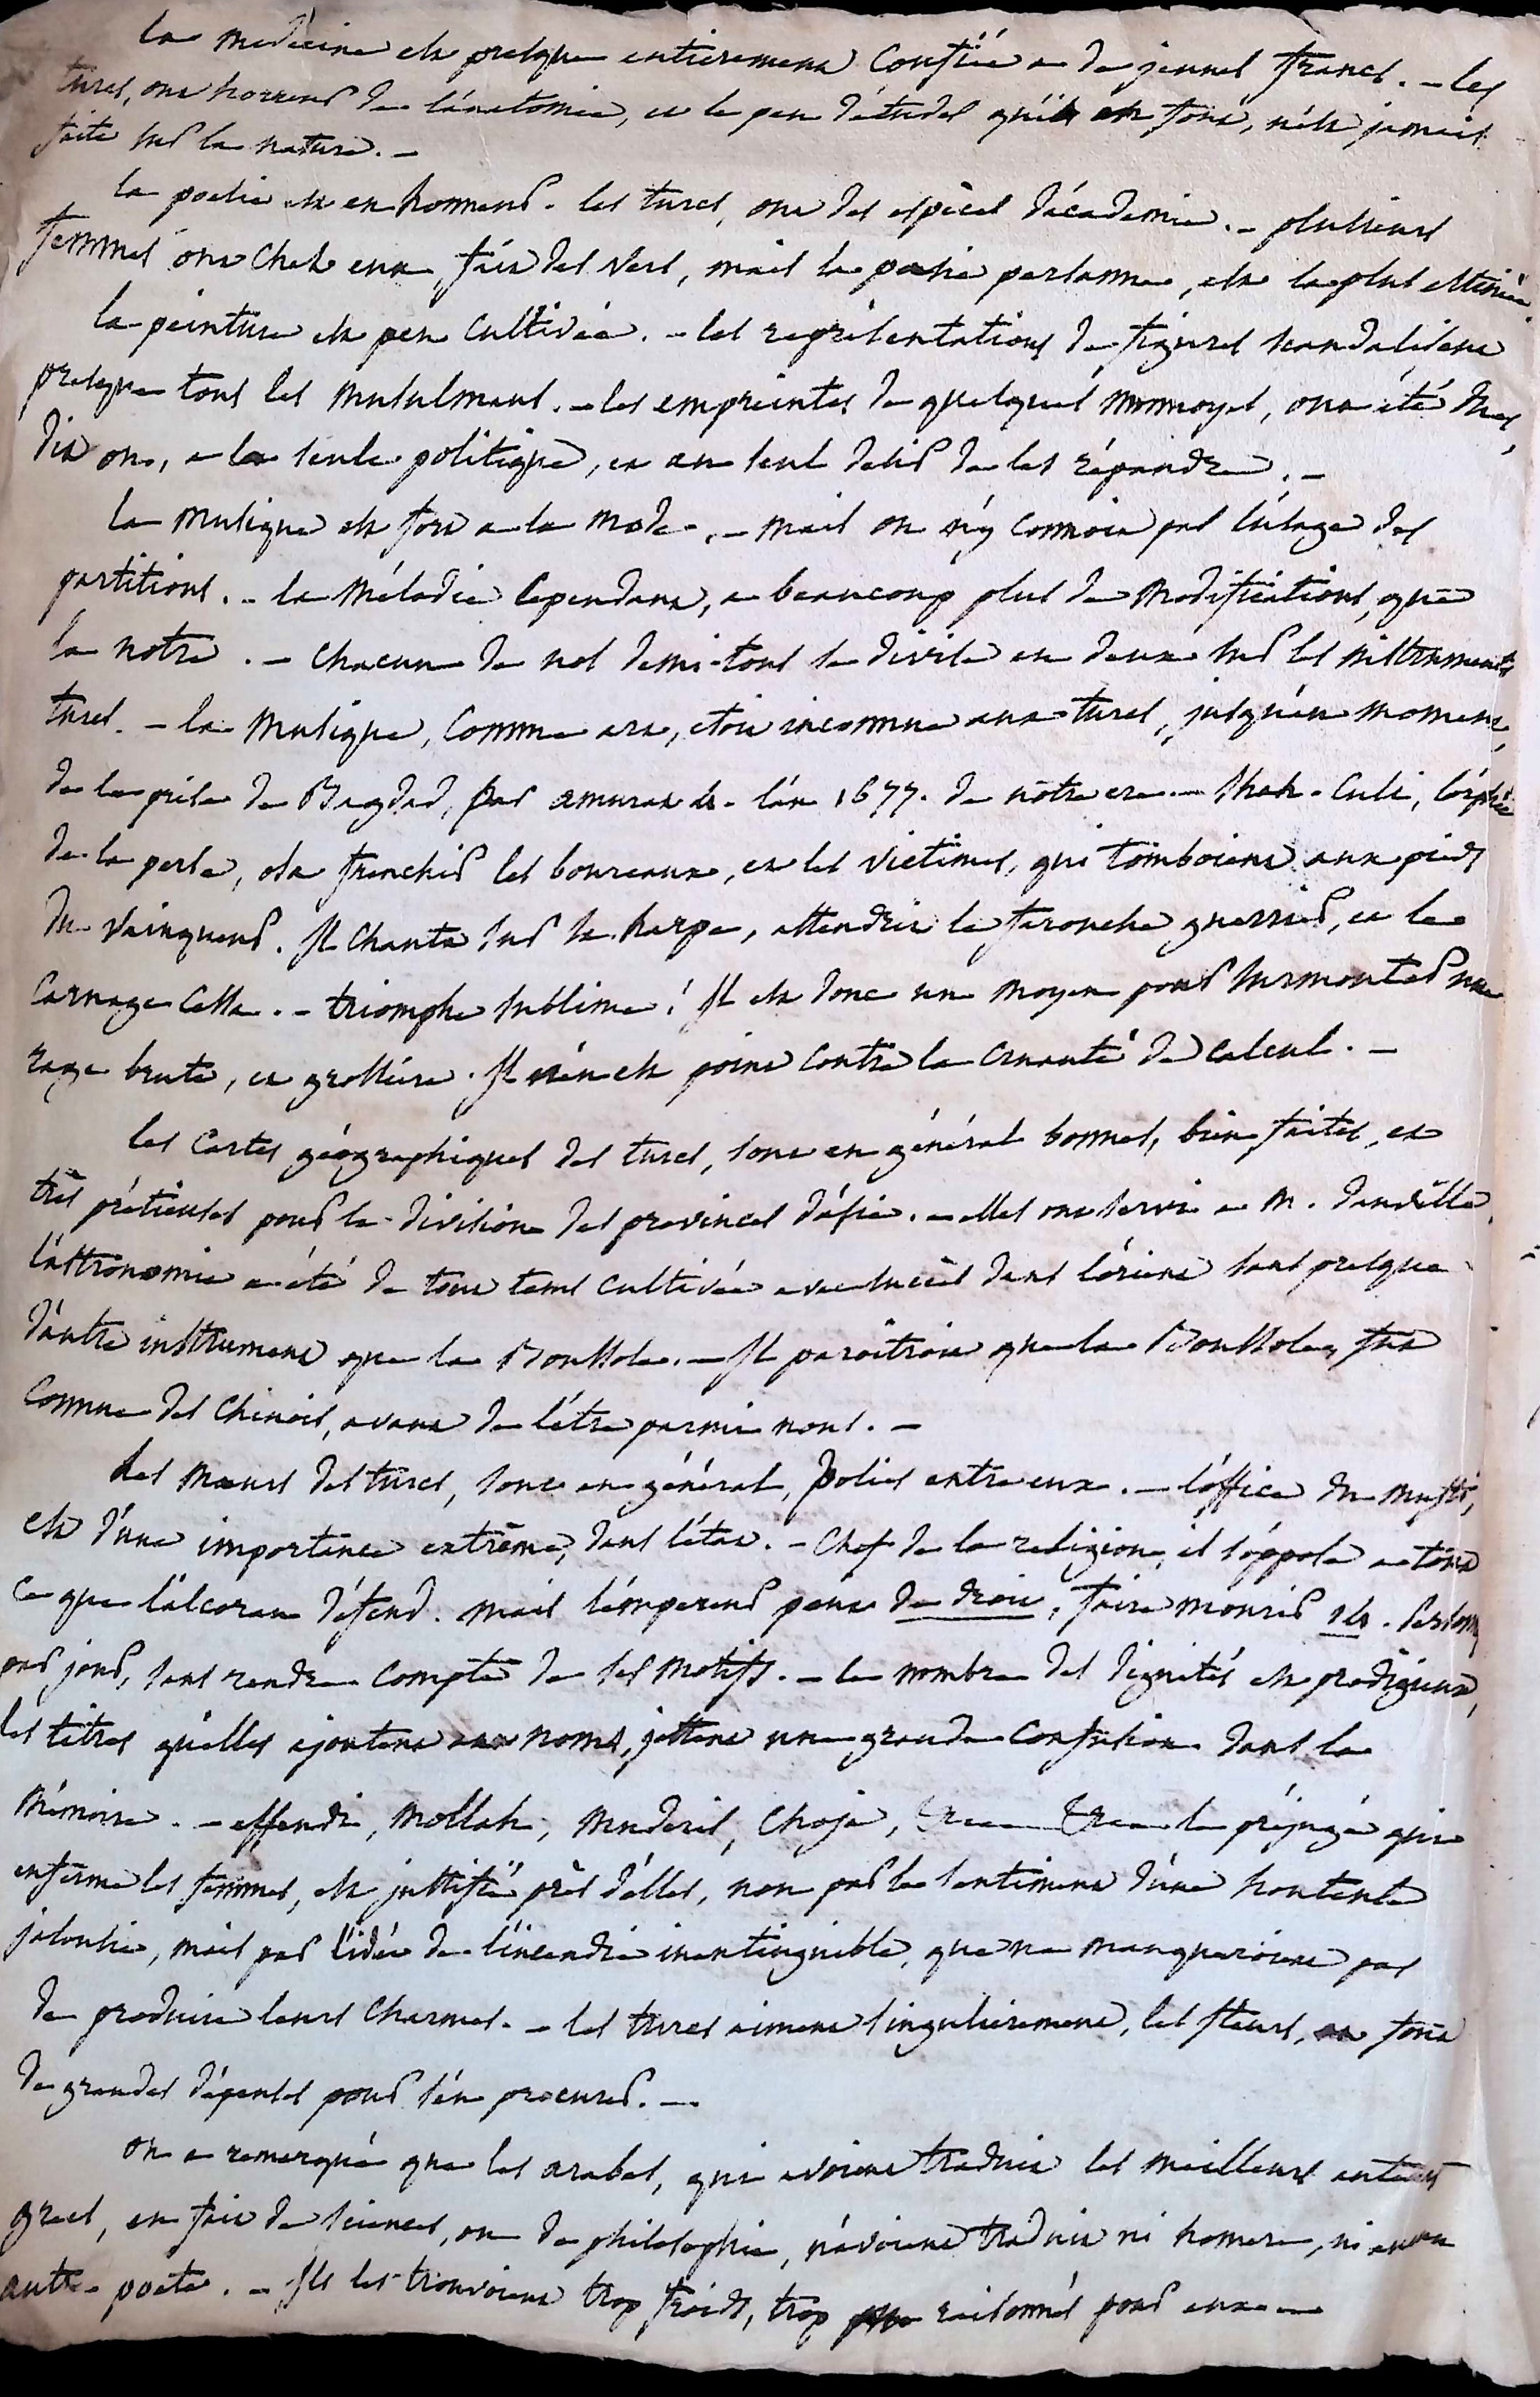 la medecine est presque entierement confiée a de jeunes francs. - les
turcs, ont horreur de l'anatomie, et le peu d'etudes qu'ils en font, n'est jamais
faite sur la nature. -
la poesie est en honneur. les turcs, ont des espèces d'académie. - plusieurs
femmes ont chez eux, fait des vers, mais la poesie persanne, est la plus estimée.
la peinture est peu cultivée. - les représentations de figures scandalisent
presque tous les musulmans. - les empreintes de quelques monnoyes, ont été dues,
dit on, a la seule politique, et au seul desir de les répandre. -
la musique est fort a la mode. - mais on n'y connoit pas l'usage des
partitions. - la mélodie cependant, a beaucoup plus de modifications, que
la notre. - chacun de nos demi-tons se divise en deux sur les instruments
turcs. - la musique, comme art, etoit inconnue aux turcs, jusqu'au moment,
de la prise de Bagdad, par amurat 4. l'an 1677. de nôtre ere. - Shah-Culi, l'orphée
de la perse, osa franchir les boureaux, et les victimes, qui tomboient aux pieds
du vainqueur. Il chanta sur sa harpe, attendrit le farouche guerrier, et le
carnage cessa. - triomphe sublime ! Il est donc un moyen pour surmonter une
rage brute, et grossiere. Il n'en est point contre la cruauté de calcul. -
les cartes géographiques des turcs, sont en général bonnes, bien faites, et
très prétieuses pour la division des provinces d'asie. - elles ont servi a M. danville.
l'astronomie a été de tous tems cultivée avec succès dans l'orient sans presque
d'autre instrument que la Boussole. - Il paroîtroit que la Boussole, fut
connue des chinois, avant de l'être parmi nous. -
les mœurs des turcs, sont en général, polies entre eux. - l'office du mufti,
est d'une importance extrême, dans l'état. - Chef de la religion, il s'oppose a tout
ce que l'alcoran défend. mais l'empereur peut de droit, faire mourir 14. personnes
par jour, sans rendre compte de ses motifs. - le nombre des dignités est prodigieux,
les titres qu'elles ajoutent aux noms, jettent une grande confusion dans la
mémoire. - effendi, mollah, muderis, choja, &c &c le préjugé qui
enferme les femmes, est justifié près d'elles, non par le sentiment d'une honteuse
jalousie, mais par l'idée de l'incendie inextinguible, que ne manqueroient pas
de produire leurs charmes. - les turcs aiment singulierement, les fleurs, et font
de grandes dépenses pour s'en procurer. -
on a remarqué que les arabes, qui avoient traduit les meilleurs auteurs
grecs, en fait de sciences, ou de philosophie, n'avoient traduit ni homere, ni aucun
autre poete. - Ils les trouvoient trop froids, trop raisonnés pour eux -